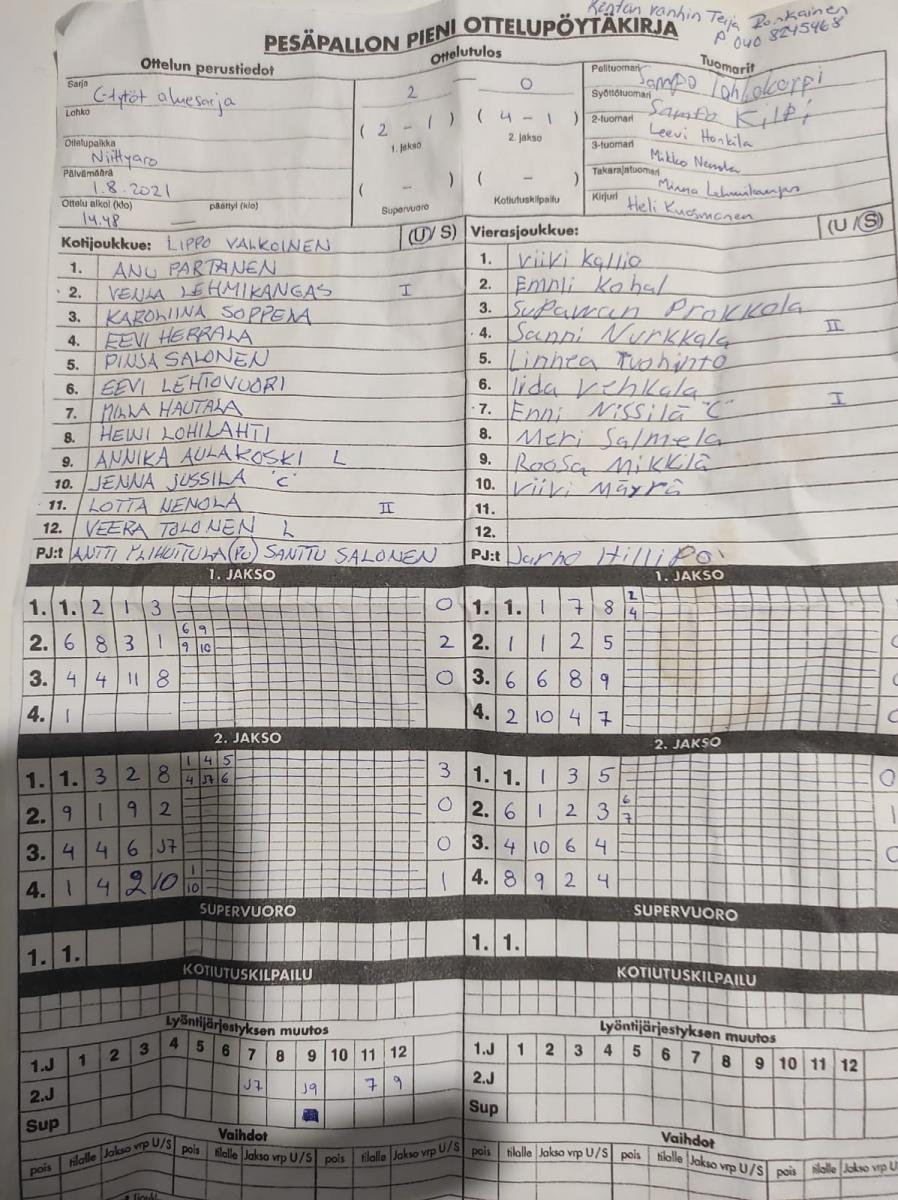 Kentän vanhin Terja Ronkainen
P 040 8245468
PESÄPALLON PIENI OTTELUPÖYTÄKIRJA
Ottelun perustiedot Ottelutulos Tuomarit
Sarja C-tytöt aluesarja
Lohko
Ottelupaikka Niittyaro
Päivämäärä 1.8.2021
Ottelu alkoi (klo) 14.48 päättyi (klo)
2 0
( 2 - 1 ) ( 4 - 1 )
1. jakso 2. jakso
( - ) ( - )
Supervuoro Kotiutuskilpailu
Pelituomari Sampo
Syöttötuomari Sampo Kilpi
2-tuomari Leevi Honkila
3-tuomari Mikko
Takarajatuomari Minna Lehmikangas
Kirjuri Heli Kuosmanen
Kotijoukkue: LIPPO VALKOINEN (U/S)
1. ANU PARTANEN
2. VENLA LEHMIKANGAS I
3. KAROLIINA SOPPELA
4. EEVI HERRALA
5. PINJA SALONEN
6. EEVI LEHTOVUORI
7. MILLA HAUTALA
8. HELVI LOHILAHTI
9. ANNIKA AULAKOSKI L
10. JENNA JUSSILA "C"
11. LOTTA NENOLA II
12. VEERA TOLONEN L
PJ:t ANTTI YLIHUITULA (PU) SANTTU SALONEN
Vierasjoukkue: (U/S)
1. Viivi Kallio
2. Emmi Kohal
3. Supawan Prokkola
4. Sanni Nurkkala II
5. Linnea Tuohinto
6. Iida Vehkala
7. Enni Nissilä "C" I
8. Meri Salmela
9. Roosa Mikkilä
10. Viivi Mäyrä
11.
12.
PJ:t Jarno Hillipo
1. JAKSO 1. JAKSO
1. 1. 2 1 3 0 1. 1. 1 7 8 2 4
2. 6 8 3 1 6 9 9 10 2 2. 1 1 2 5
3. 4 4 11 8 0 3. 6 6 8 9
4. 1 4. 2 10 4 7
2. JAKSO 2. JAKSO
1. 1. 3 2 8 1 4 5 4 J7 6 3 1. 1. 1 3 5 0
2. 9 1 9 2 0 2. 6 1 2 3 6 7 1
3. 4 4 6 J7 0 3. 4 10 6 4 0
4. 1 4 2 10 1 10 1 4. 8 9 2 4
SUPERVUORO SUPERVUORO
1. 1. 1. 1.
KOTIUTUSKILPAILU KOTIUTUSKILPAILU
Lyöntijärjestyksen muutos Lyöntijärjestyksen muutos
1.J 1 2 3 4 5 6 7 8 9 10 11 12 1.J 1 2 3 4 5 6 7 8 9 10 11 12
2.J J7 J9 7 9 2.J
Sup Sup
Vaihdot Vaihdot
pois tilalle Jakso vrp U/S pois tilalle Jakso vrp U/S pois tilalle Jakso vrp U/S pois tilalle Jakso vrp U/S pois tilalle Jakso vrp U/S pois tilalle Jakso vrp U